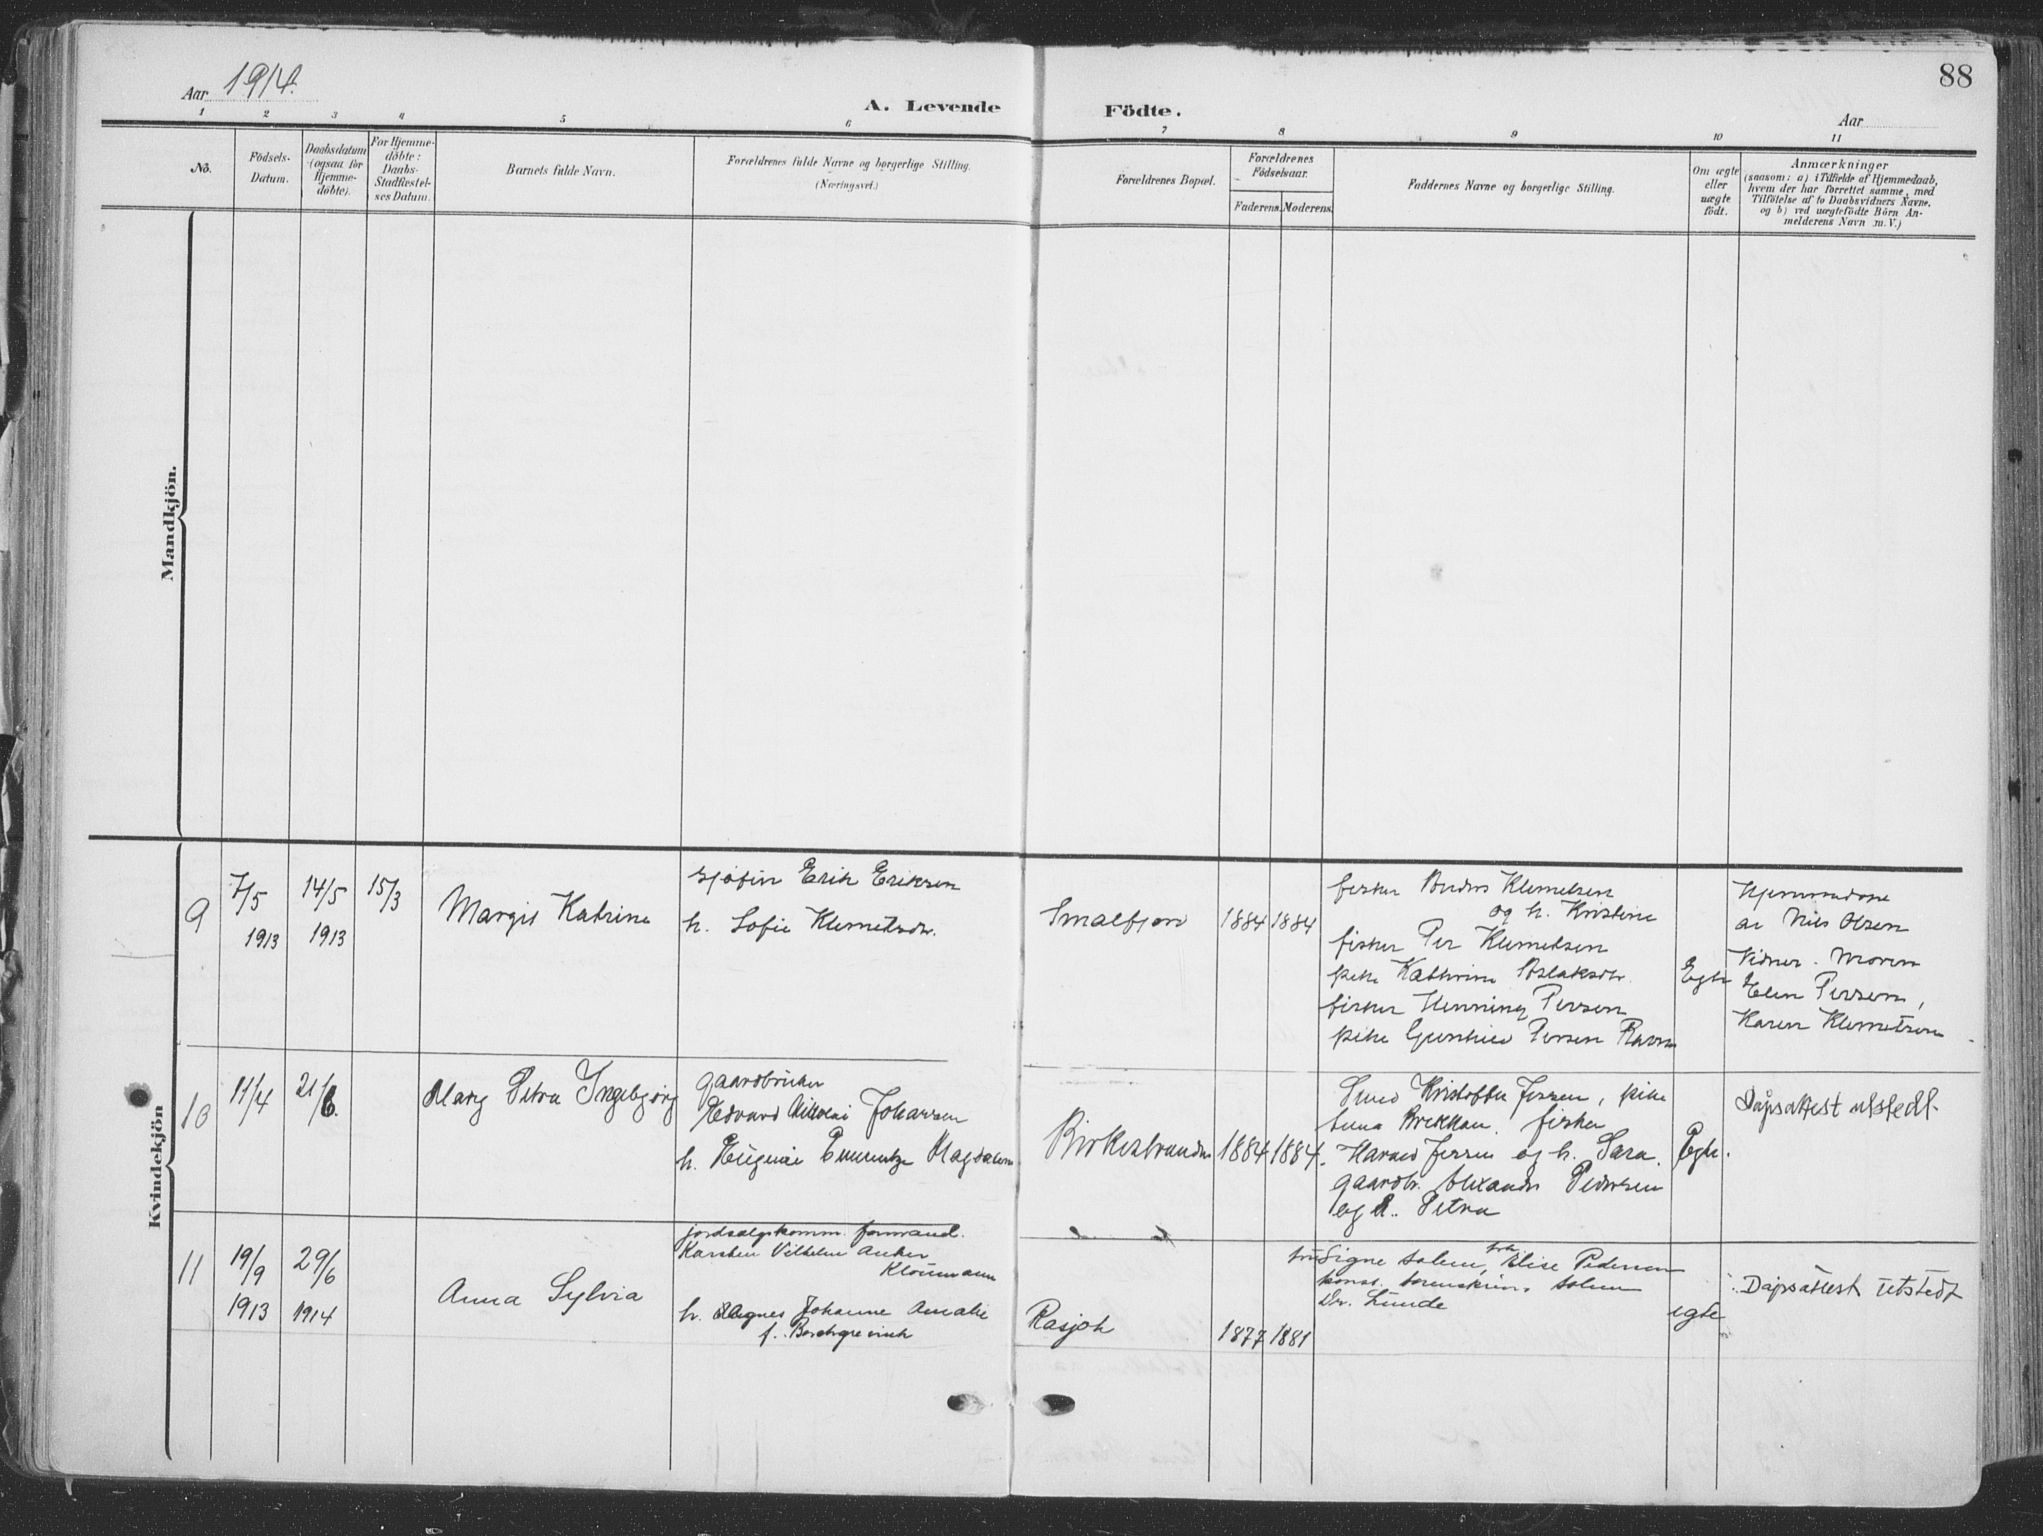 88
Aar 1914.
A. Levende Födte.
Aar
1 2 3 4 5 6 7 8 9 10 11
No.
Födsels-
Datum.
Daabsdatum
(ogsaa for
Hjemme-
döbte).
For Hjemme-
döbte:
Daabs-
Stadfæstel-
ses Datum.
Barnets fulde Navn.
Forældrenes fulde Navne og borgerlige Stilling.
(Næringsvei.)
Forældrenes Bopæl.
Forældrenes
Födselsaar.
Faderens.
Moderens.
Faddernes Navne og borgerlige Stilling.
Om ægte
eller
uægte
födt.
Anmærkninger
(saasom: a) i Tilfælde af Hjemmedaab,
hvem der har forrettet samme, med
Tilföielse af to Daabsvidners Navne.
og b) ved uægtefödte Börn An-
melderens Navn m.V.)
Mandkjön.
Kvindekjön
9
7/5
1913
14/5
1913
15/3
Margit Katrine
sjøfin Erik Eriksen
h. Sofie Klemetsdr.
Smalfjord
1884
1884
fisker Anders Klemetsen
og h. Kristine
fisker Per Klemetsen
pike Kathrine Aslaksdr.
fisker Henning Persen
pike Gunhild Persen Ravna
Egte
Hjemmedøpt
av Nils Olsen
Vidner. Moren
Elen Persen,
Karen Klemetsen
10
11/4
21/6.
Mary Petra Ingebjørg
gaardbruker
Edvard Nikolai Johansen
h. Eugenie Magdalena
Birkestranden
1884
1884.
Kristoffer Jessen, pike
Anna Brekkan. fisker
Harald Jessen og h. Sara.
gaardbr. Alexander Pedersen
og h. Petra
Egte.
Dåpsattest utstedt.
11
19/9
1913
29/6
1914
Anna Sylvia
jordsalgskomm. formand.
Karsten Vilhelm Anker
Kloumann
h. Agnes Johanne Amalie
f. Borchgrevink
Rasjok
1877
1881
fru Signe Solem, frk. Elise Pedersen
konst. sorenskriv. Solem
Dr. Lunde
egte
Dåpsattest utstedt